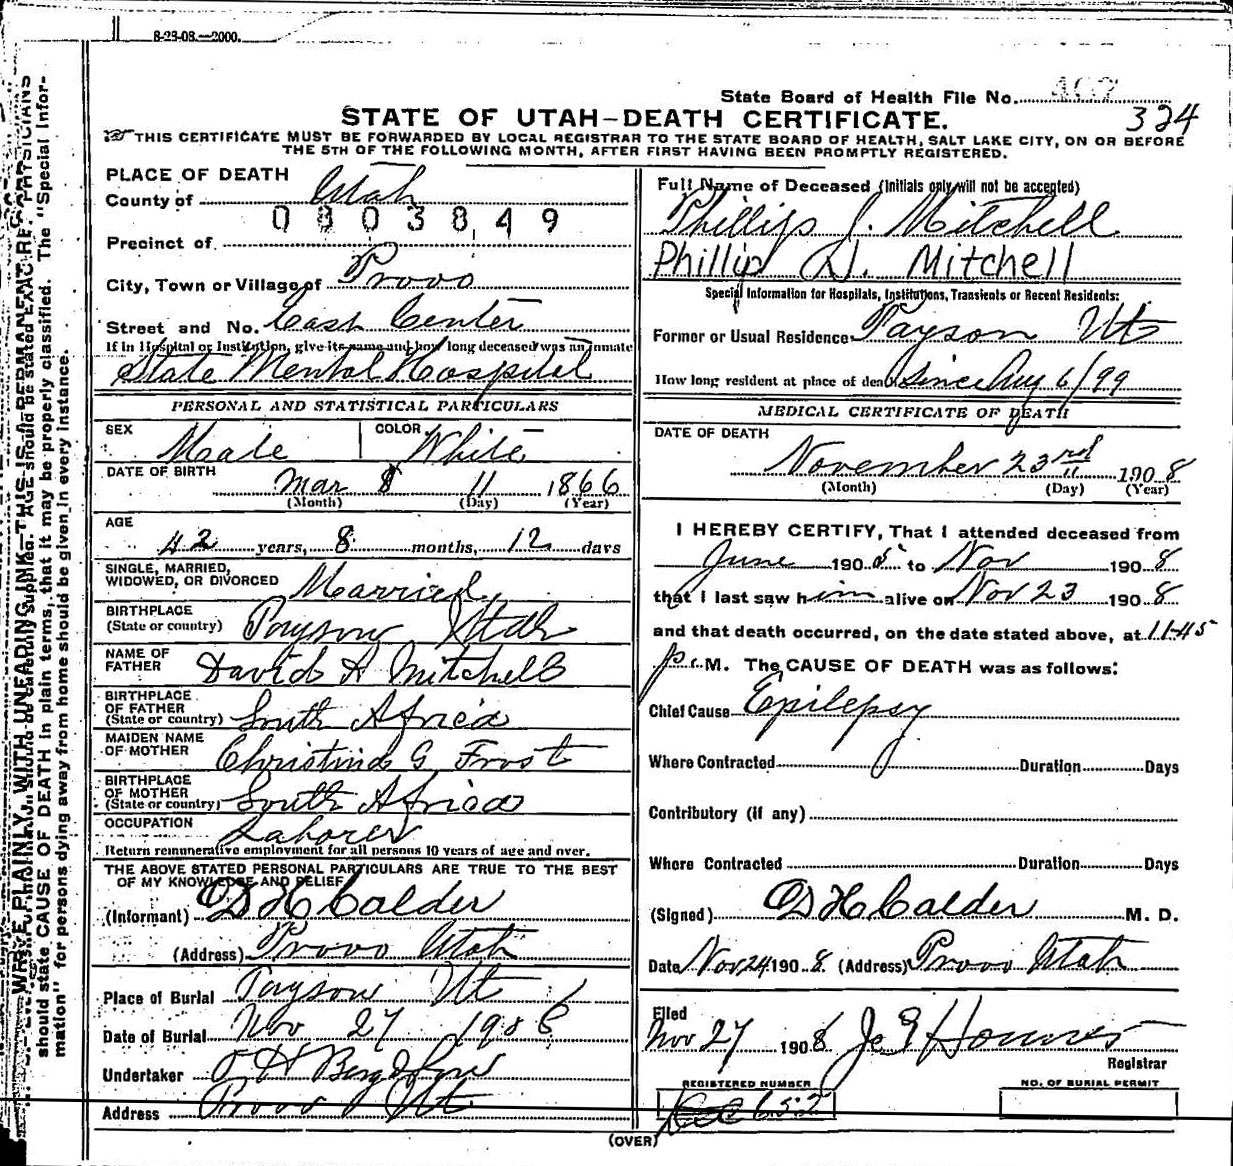 8-23-08.—2000.
State Board of Health File No. 402
324
STATE OF UTAH—DEATH CERTIFICATE.
THIS CERTIFICATE MUST BE FORWARDED BY LOCAL REGISTRAR TO THE STATE BOARD OF HEALTH, SALT LAKE CITY, ON OR BEFORE
THE 5TH OF THE FOLLOWING MONTH, AFTER FIRST HAVING BEEN PROMPTLY REGISTERED.
PLACE OF DEATH
County of Utah
0003849
Precinct of
City, Town or Village of Provo
Street and No. East Center
If in Hospital or Institution, give its name and how long deceased was an inmate
State Mental Hospital
PERSONAL AND STATISTICAL PARTICULARS
SEX Male COLOR White
DATE OF BIRTH Mar 11 1866
(Month) (Day) (Year)
AGE
42 years, 8 months, 12 days
SINGLE, MARRIED,
WIDOWED, OR DIVORCED Married
BIRTHPLACE
(State or country) Payson Utah
NAME OF
FATHER David H Mitchell
BIRTHPLACE
OF FATHER
(State or country) South Africa
MAIDEN NAME
OF MOTHER Christina G Frost
BIRTHPLACE
OF MOTHER
(State or country) South Africa
OCCUPATION Laborer
Return remunerative employment for all persons 10 years of age and over.
THE ABOVE STATED PERSONAL PARTICULARS ARE TRUE TO THE BEST
OF MY KNOWLEDGE AND BELIEF
(Informant) D H Calder
(Address) Provo Utah
Place of Burial Payson Ut
Date of Burial Nov 27 1908
Undertaker O H Berg & Son
Address Provo Ut
Full Name of Deceased (Initials only will not be accepted)
Phillips J. Mitchell
Phillip D. Mitchell
Special Information for Hospitals, Institutions, Transients or Recent Residents:
Former or Usual Residence Payson Ut
How long resident at place of death Since Aug 6/99
MEDICAL CERTIFICATE OF DEATH
DATE OF DEATH
November 23rd 1908
(Month) (Day) (Year)
I HEREBY CERTIFY, That I attended deceased from
June 1905 to Nov 1908
that I last saw him alive on Nov 23 1908
and that death occurred, on the date stated above, at 11-45
p.M. The CAUSE OF DEATH was as follows:
Chief Cause Epilepsy
Where Contracted Duration Days
Contributory (if any)
Where Contracted Duration Days
(Signed) D H Calder M. D.
Date Nov 24 1908 (Address) Provo Utah
Filed
Nov 27 1908
Registrar
REGISTERED NUMBER
652
NO. OF BURIAL PERMIT
(OVER)
WRITE PLAINLY, WITH UNFADING INK—THIS IS PERMANENT RE
AGE should be stated EXACTLY. PHYSICIANS
should state CAUSE OF DEATH in plain terms, that it may be properly classified. The "Special Infor-
mation" for persons dying away from home should be given in every instance.